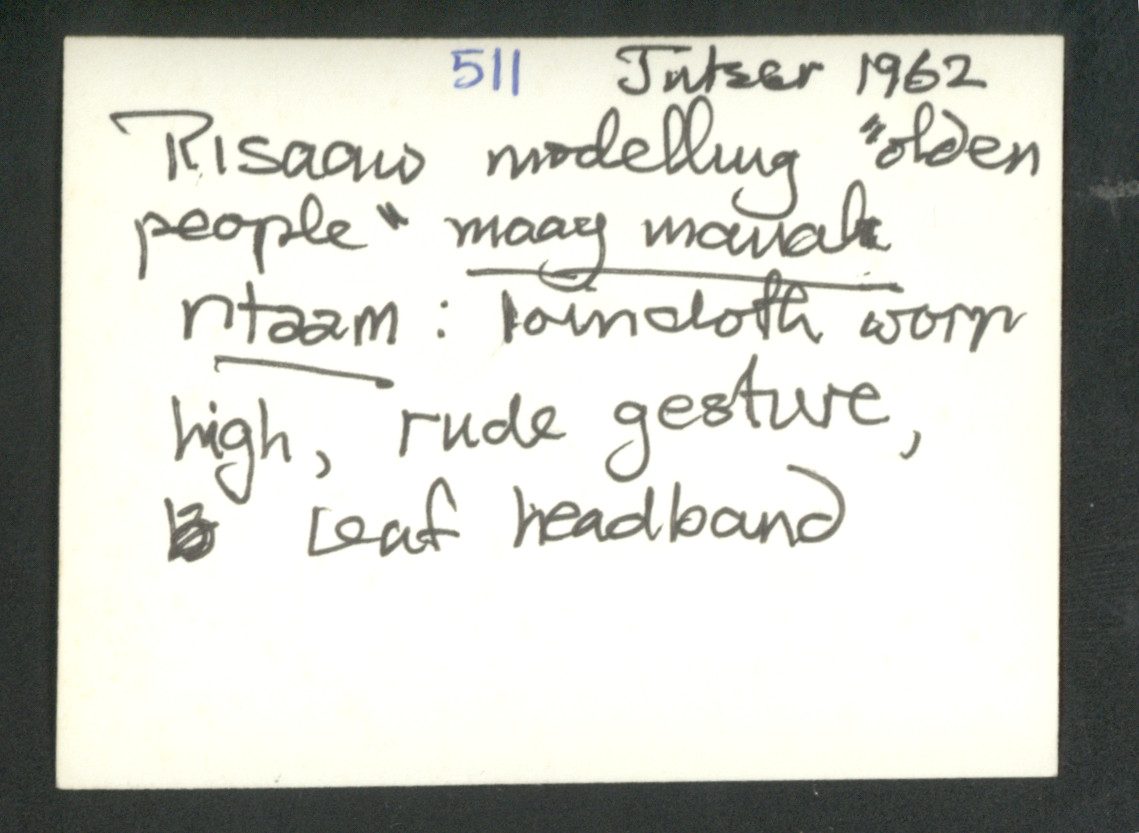 511 Jutser 1962
Risaaw modelling "olden
people" maay mawak
ntaam : loincloth worn
high, rude gesture,
Leaf headband